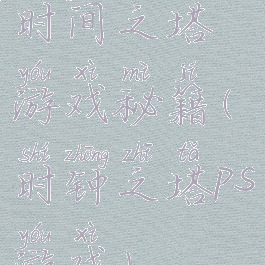 时间之塔
yóu xì mì jí
游戏秘籍(
shí zhōng zhī tǎ
时钟之塔PS
yóu xì
游戏)